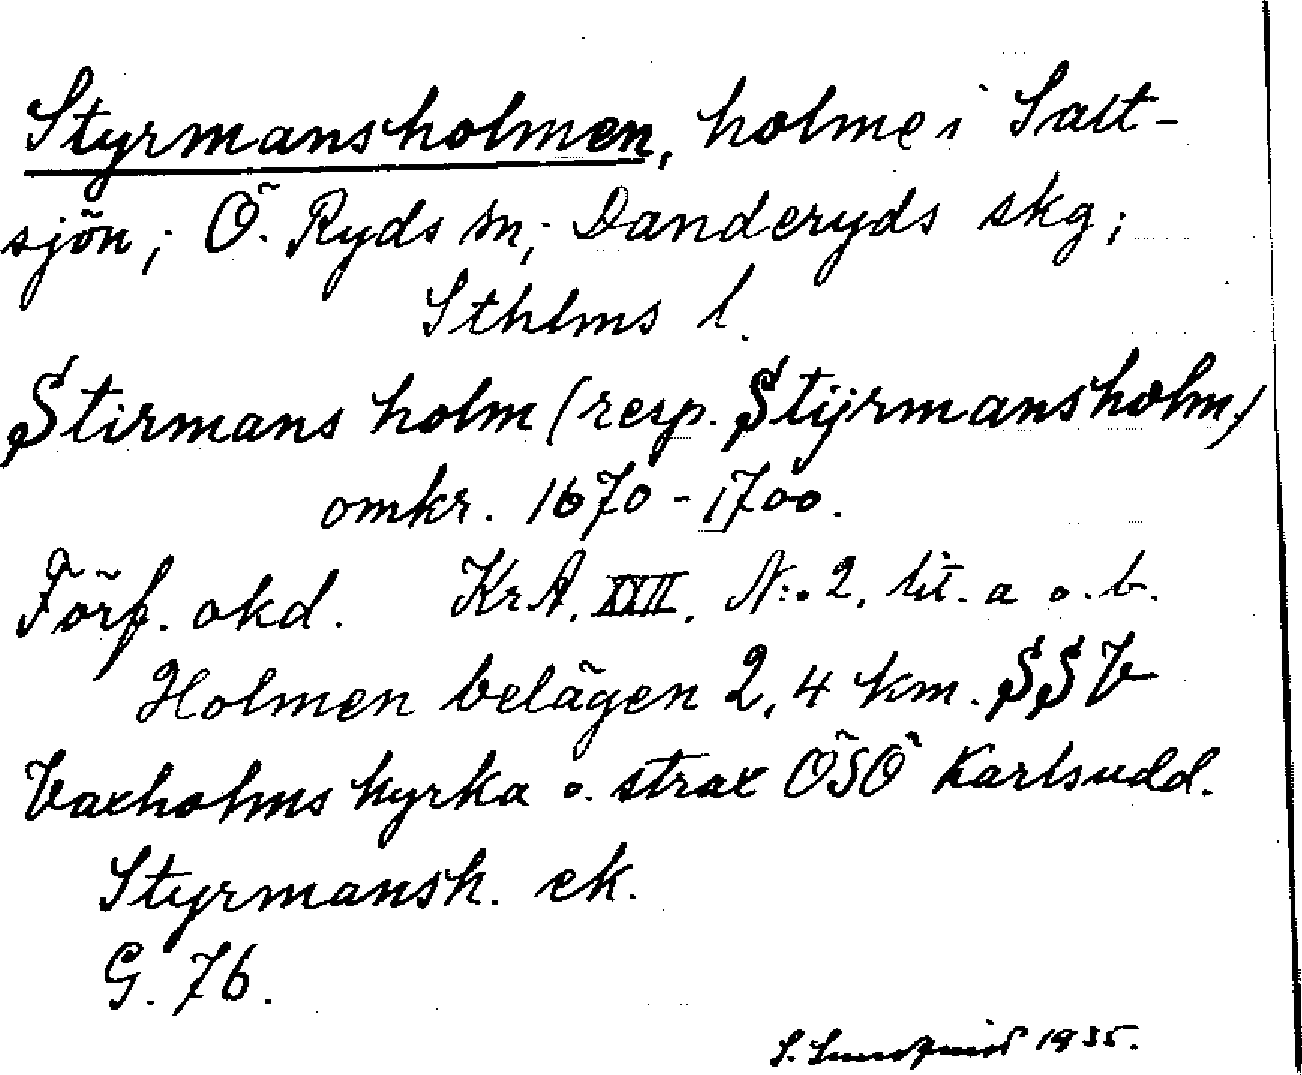 Styrmansholmen, holme i Salt-
sjön; Ö. Ryds sn; Danderyds skg;
Sthlms l.
Stirmans holm (resp. Stÿrmansholm)
omkr. 1670-1700.
Förf. okd. KrA. XXII. N:o 2, lit. a o. b.
Holmen belägen 2,4 km. SSV
Vaxholms kyrka o. strax ÖSÖ Karlsudd.
Styrmansh. ek.
G. 76.
S. Lundqvist 1935.